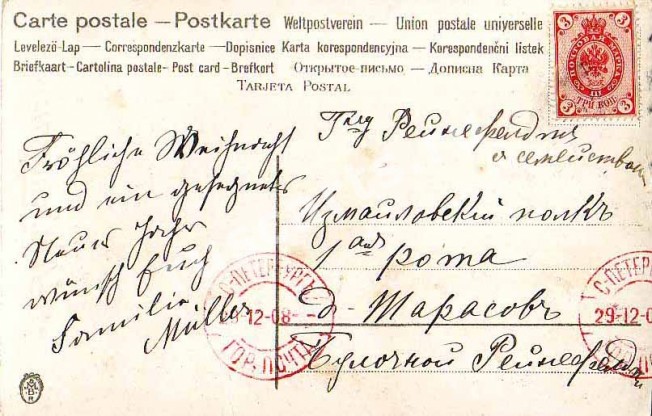 Carte postale — Postkarte Weltpostverein — Union postale universelle
Levelező-Lap — Correspondenzkarte — Dopisnice Karta korespondencyjna — Korespondenční lístek
Briefkaart - Cartolina postale - Post card - Brefkort Открытое-письмо — Дописна Карта
Tarjeta Postal
3 3
ПОЧТОВАЯ МАРКА
ТРИ КОП.
3 3
Fröhliche Weihnacht
und ein gesegnetes
Neues Jahr
wünscht Euch
Familie
Müller
съ семействомъ
Измайловскій полкъ
1ая рота
д. Тарасовъ
Булочной
С-ПЕТЕРБУРГЪ
29-12-08
ГОР. ПОЧТА
С-ПЕТЕР
29-12-0